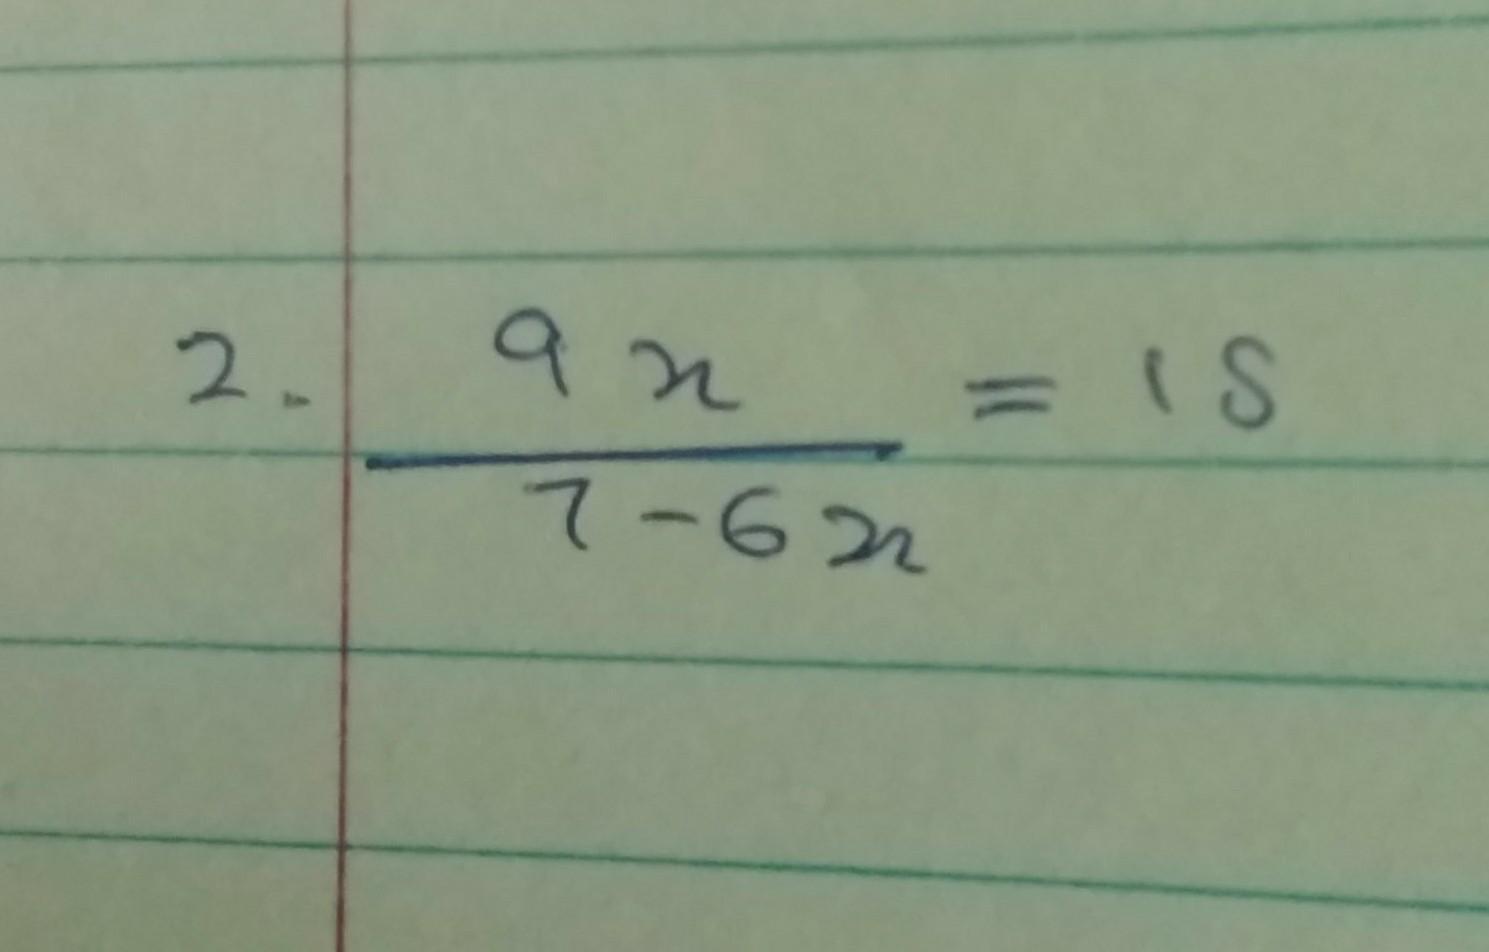 2. 9x / 7-6x = 15